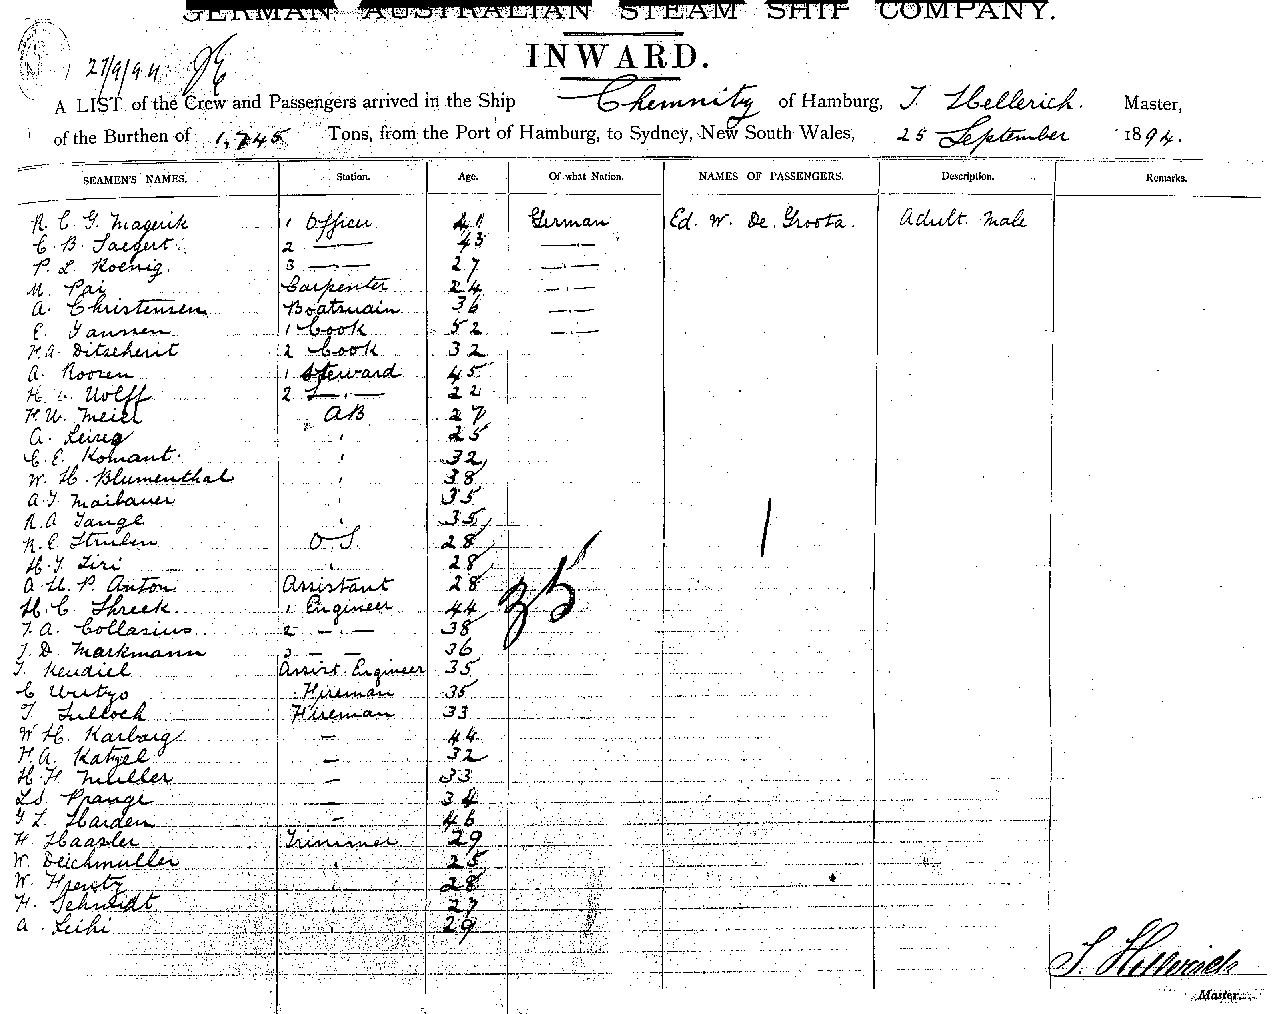 GERMAN AUSTRALIAN STEAM SHIP COMPANY.
INWARD.
27/9/94
A LIST of the Crew and Passengers arrived in the Ship Chemnitz of Hamburg, T. Hellerich. Master,
of the Burthen of 1,745 Tons, from the Port of Hamburg, to Sydney, New South Wales, 25 September 1894.
SEAMEN'S NAMES. Station. Age. Of what Nation. NAMES OF PASSENGERS. Description. Remarks.
R. C. G. Magerik 1 Officer 41 German Ed. W. De Groota. Adult Male
C. B. Jaegert. 2 —— 43 ——
P. L. Koenig. 3 —— 27 ——
M. Pai Carpenter 24 ——
A. Christensen Boatswain 36 ——
E. Janssen 1 Cook 52 ——
H. A. Ditscherit 2 Cook 32
A. Roosen 1 Steward 45
H. Wolff 2 —— 22
H. W. Meier AB 27
A. 25
C. E. Komant. 32
W. H. Blumenthal 38
A. T. Maibauer 35
R. A. Tange 35
R. C. Struben O S. 28
H. J. 28
A. H. P. Anton Assistant 28
H. C. Shreek. 1 Engineer 44
35
1
T. A. Collasius 2 —— 38
J. D. Markmann 3 — — 36
T. Keudiel Assist. Engineer 35
C. Fireman 35
T. Tulloch Fireman 33
W. H. Karbarg — 44
H. A. Katzel — 32
H. F. Muller — 33
L. S. Prange — 34
G. L. Harden — 46
H. Haasler Trimmer 29
W. Deichmuller 25
W. 28
H. Schmidt 27
A. Leihi 29
T. Hellerich
Master.